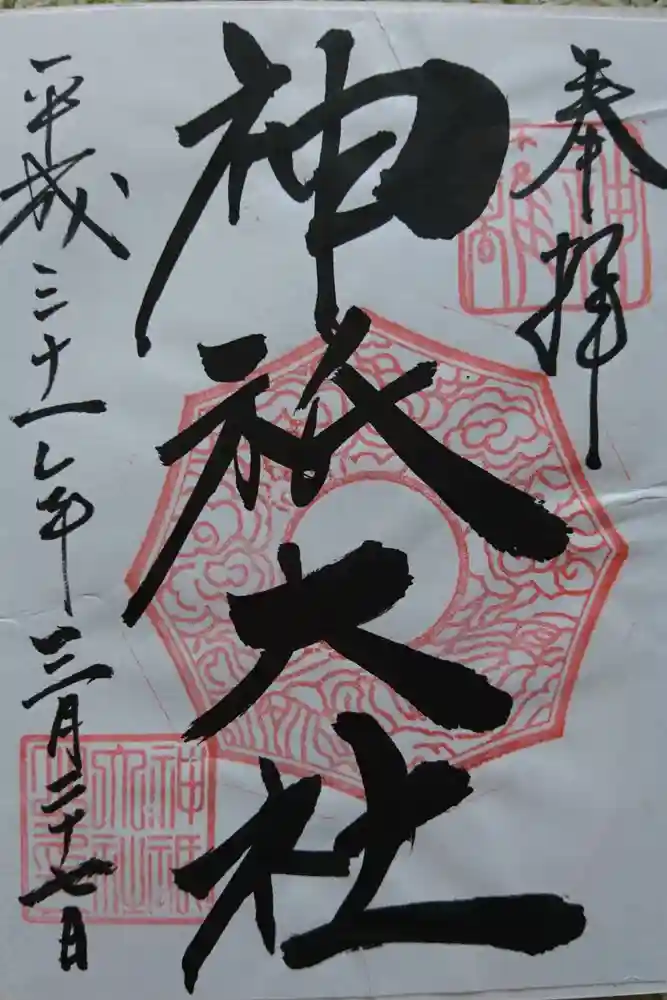 奉拝
神祇大社
平成三十一年三月二十七日
神祇大社